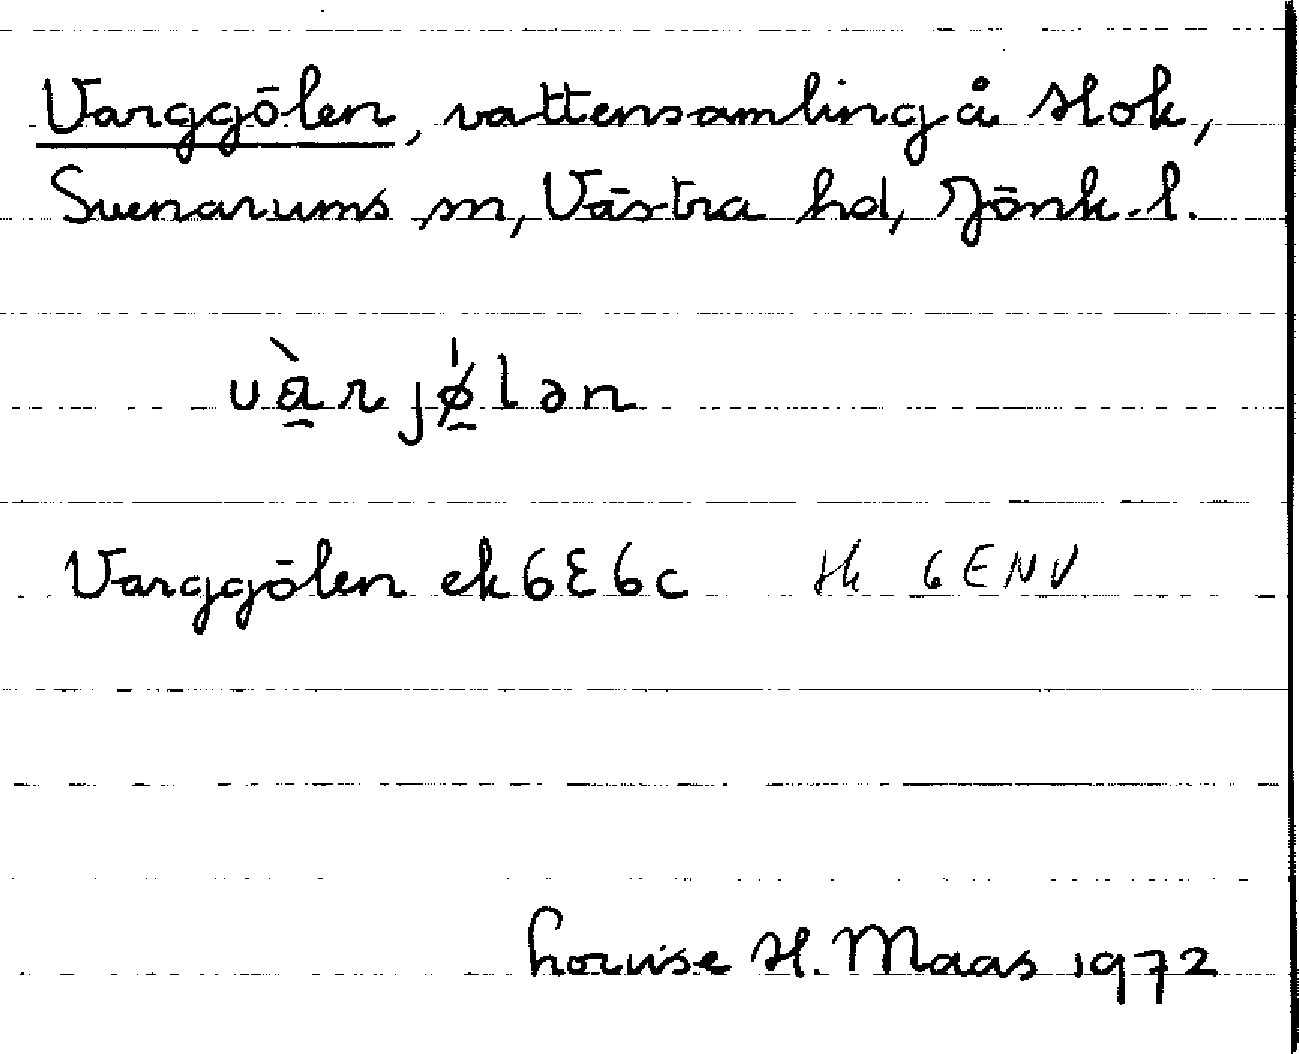 Varggölen, vattensamling å Hok,
Svenarums sn, Västra hd, Jönk. l.
vàrjø̍lən
Varggölen ek 6E6c Hk 6 E NV
Louise H. Maas 1972